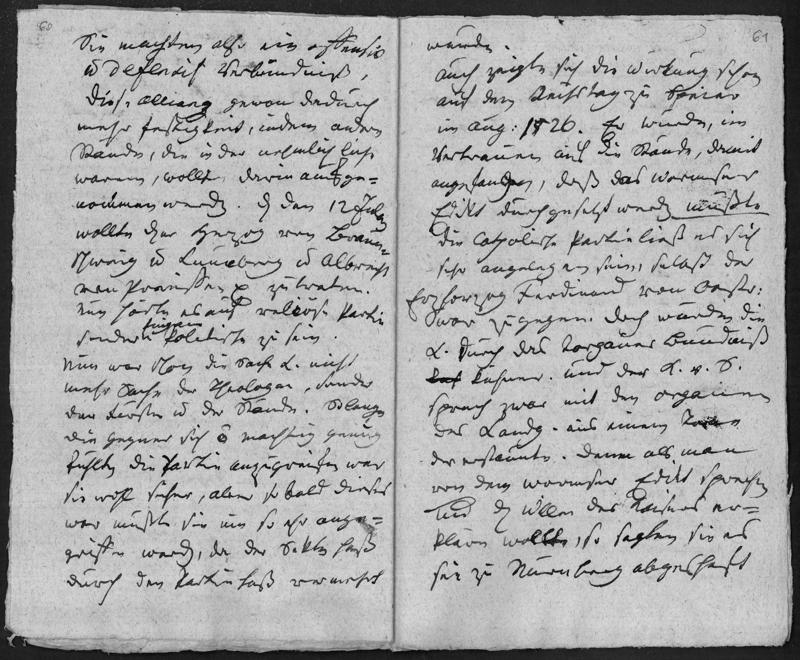 60
Sie machten also ein offensiv
u defensif Verbündniß,
diese Allianz gewan dadurch
mehr festigkeit, indem andere
Stände, die in der nehmlich
waren, wollten darein aufge=
nommen werden. den 12 July
wollte der Herzog von Braun=
schweig u Lüneberg u Albrecht
von Preussen zu tretten.
Nun hörte es auf religiöse Partie
sondern fingen Politische zu sein.
Nun war schon die Sach L. nicht
mehr Sache der Theologen, sondern
der Fürsten u der Stände. Solange
die gegner sich mächtig genug
fühlten die Partie anzugreifen war
sie wohl sicher, aber so bald dieses
war müßte sie um so ehr ange=
griffen werden, da der Sekten haß
durch den Partie haß vermehrt
61
wurde.
Auch zeigte sich die Wirkung schon
auf dem Reichstag zu Speier
im Aug: 1526. Er wurde, im
Vertrauen auf die Stände, damit
angefangen, daß das Wormser
Edikt durchgesetzt werden müßte
die Catholische Partie ließ es sich
sehr angelegen sein, selbst der
Erzherzog Ferdinand von Oestr:
war zugegen. Doch wurden die
L. durch das Torgauer Bündniß
kühner. und der K. v. S.
sprach zwar mit den organen
des Landg. aus einem
der erstaunte. Denn als man
von dem Wormser Edikt sprechen
und den Willen des Kaisers er=
klären wollte, so sagten sie es
sei zu Nürnberg abgeschaft